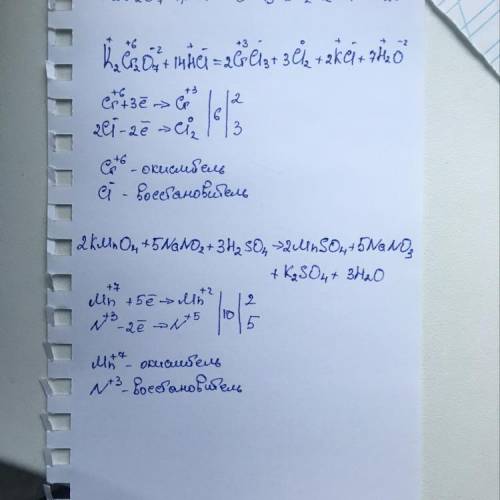 K₂⁺Cr₂⁺⁶O₇⁻² + 14H⁺Cl⁻ = 2Cr⁺³Cl₃⁻ + 3Cl₂⁰ + 2K⁺Cl⁻ + 7H₂⁺O⁻²
Cr⁺⁶ + 3ē → Cr⁺³ | 6 | 2
2Cl⁻ - 2ē → Cl₂⁰ | | 3
Cr⁺⁶ - окислитель
Cl⁻ - восстановитель
2KMnO₄ + 5NaNO₂ + 3H₂SO₄ → 2MnSO₄ + 5NaNO₃
+ K₂SO₄ + 3H₂O
Mn⁺⁷ + 5ē → Mn⁺² | 10 | 2
N⁺³ - 2ē → N⁺⁵ | | 5
Mn⁺⁷ - окислитель
N⁺³ - восстановитель